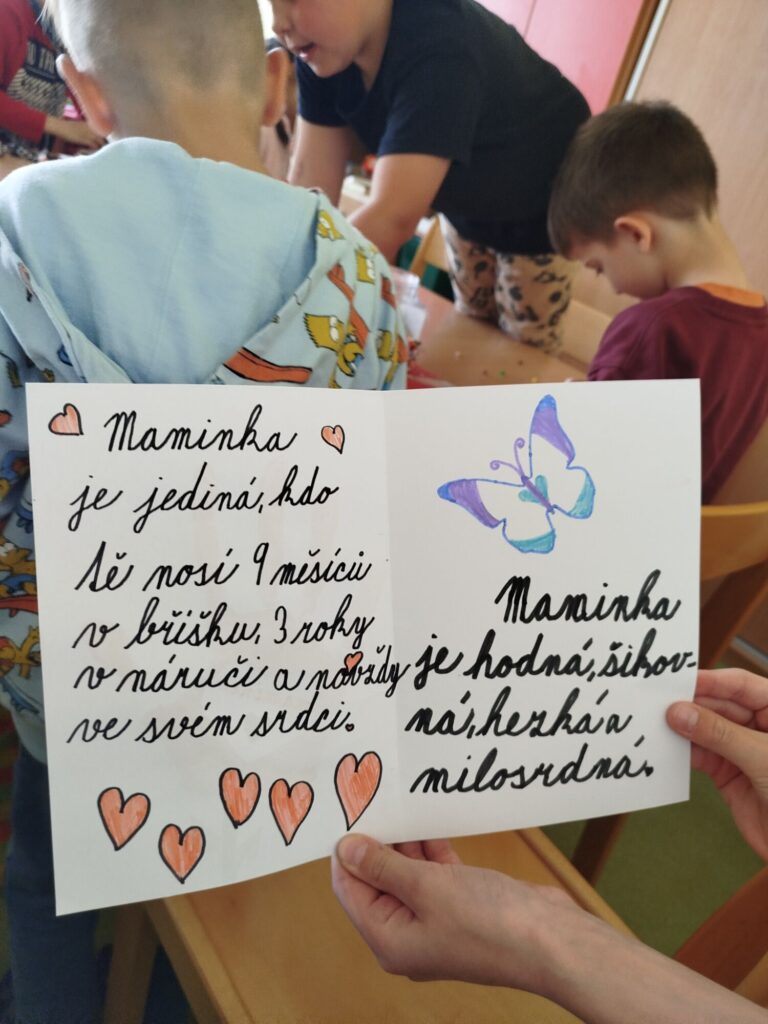 Maminka
je jediná, kdo
Tě nosí 9 měsíců
v bříšku, 3 roky
v náručí a navždy
ve svém srdci.
Maminka
je hodná, šikov-
ná, hezká a
milosrdná.